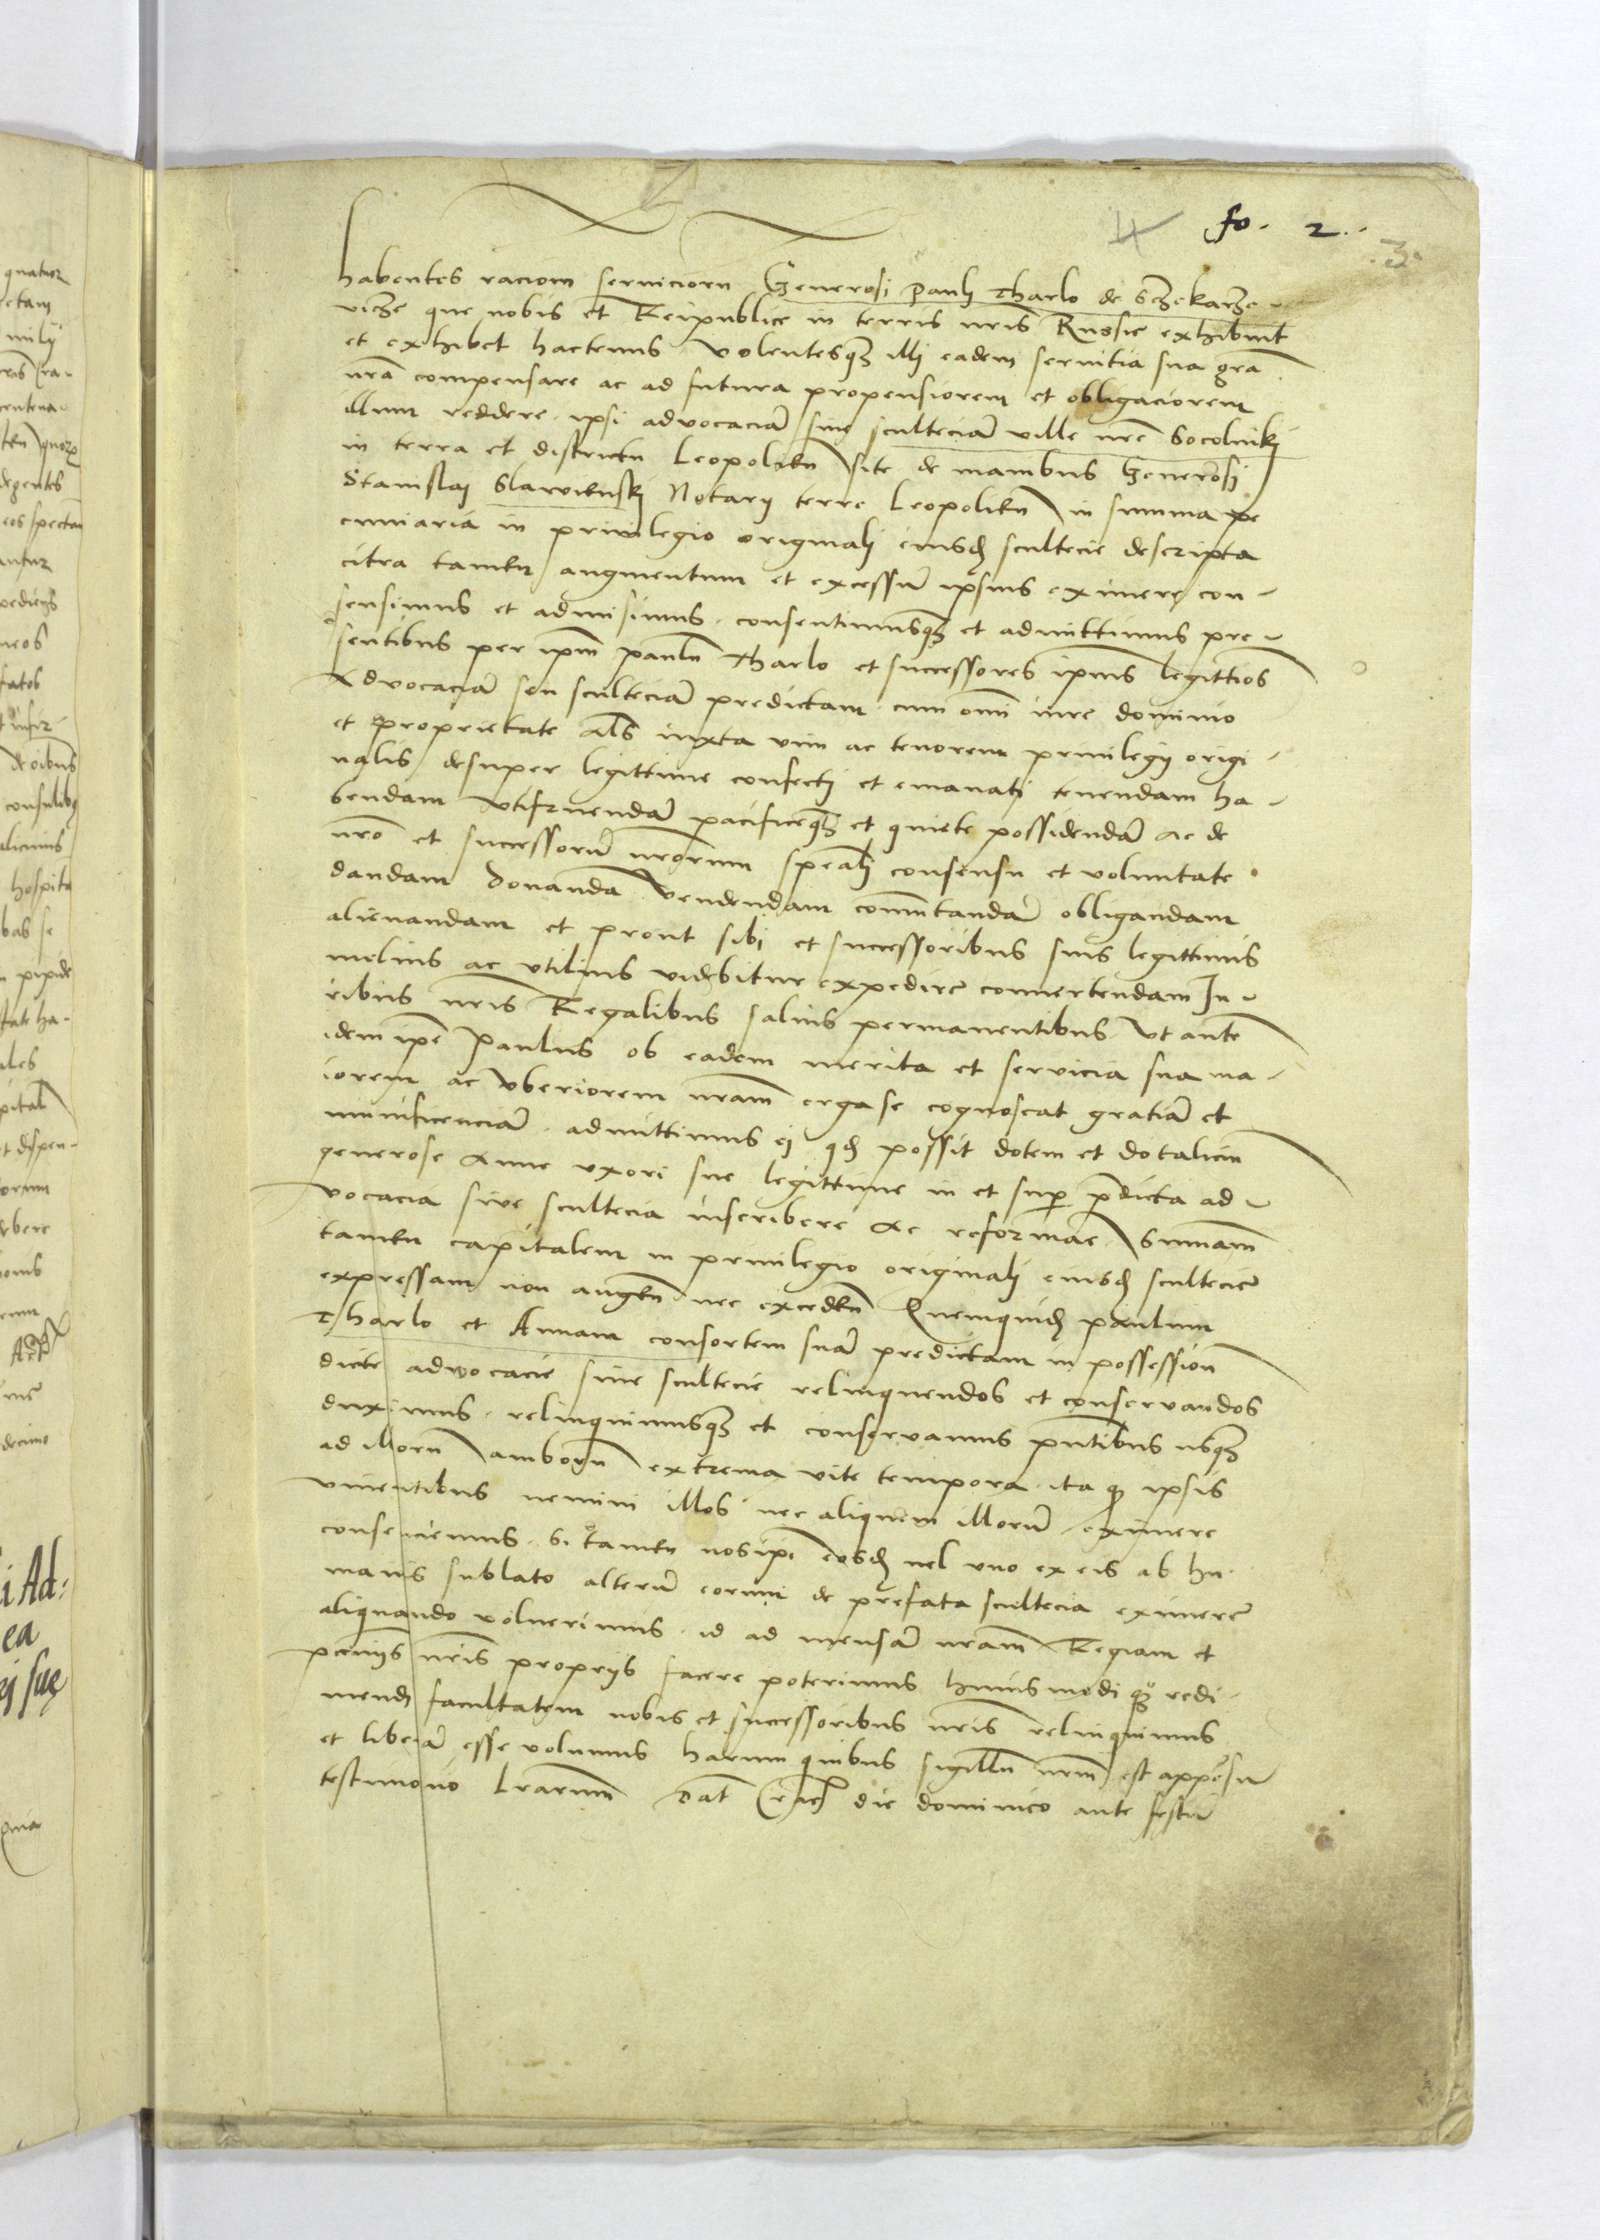 fo. 2.
3.
habentes raciom serviciorū Generosi Pauli Tharlo de Sczekarze-
vicze que nobis et Reipublice in terris nris Russie exhibuit
et exhibet hactenus volentesqȝ illi eadem servitia sua gra
nra compensare ac ad futura propensiorem et obligaciorem
illum reddere. ipsi advocaciā sive sculteciā ville nre Socolniki
in terra et districtu Leopolien site de manibus Generosi
Stanislaj Slawienski Notarij terre Leopolien in summa pe
cuniaria in privilegio originali eiusdē scultecie descripta
citra tamen augmentum et excessū ipsius eximere con-
sensimus et admisimus. consentimusqȝ et admittimus pre-
sentibus per ipm Paulū Tharlo et successores ipius legittiōs
Advocaciā seu sculteciā predictam cum omi iure dominio
et proprietate Als iuxta vim ac tenorem privilegij origi-
nalis desuper legittime confecti et emanati tenendam ha-
bendam utifruendā pacificeqȝ et quiete possidendā Ac de
nro et successorū nrorum speali consensu et voluntate.
dandam donandā vendendam comutandā obligandam
alienandam et prout sibi et successoribus suis legittimis
melius ac utilius videbitur expedire convertendam Iu-
ribus nris Regalibus salvis permanentibus Ut autē
idem ipe Paulus ob eadem merita et servicia sua ma-
iorem ac uberiorem nram erga se cognoscat gratiā et
munificenciā. admittimus ej qđ possit dotem et dotaliciū
generose Anne uxori sue legittime in et sup pdicta ad-
vocacia sive scultecia inscribere Ac reformare Sumam
tamen capitalem in privilegio originali eiusdē scultecie
expressam non augeñ nec exceden Quemquidē Paulum
Tharlo et Annam consortem suā predictam in possession
dicte advocacie sive scultecie relinquendos et conservandos
duximus. relinquimusqȝ et conservamus pntibus usqȝ
ad illorū amborū extrema vite tempora. ita qȝ ipsis
viventibus nemini illos nec aliquem illorū eximere
consenciemus. Si tamen nosipi eosdē vel uno ex eis ab hu-
manis sublato alterū eorum de prefata scultecia eximere
aliquando voluerimus. id ad mensā nram Regiam et
pecunijs nris proprijs facere poterimus huiusmodi qȝ redi-
mendi facultatem nobis et successoribus nris relinquimus
et liberā esse volumus harum quibus sigillū nrm est appensū
testimonio lrarum Dat Crac die dominico ante festū